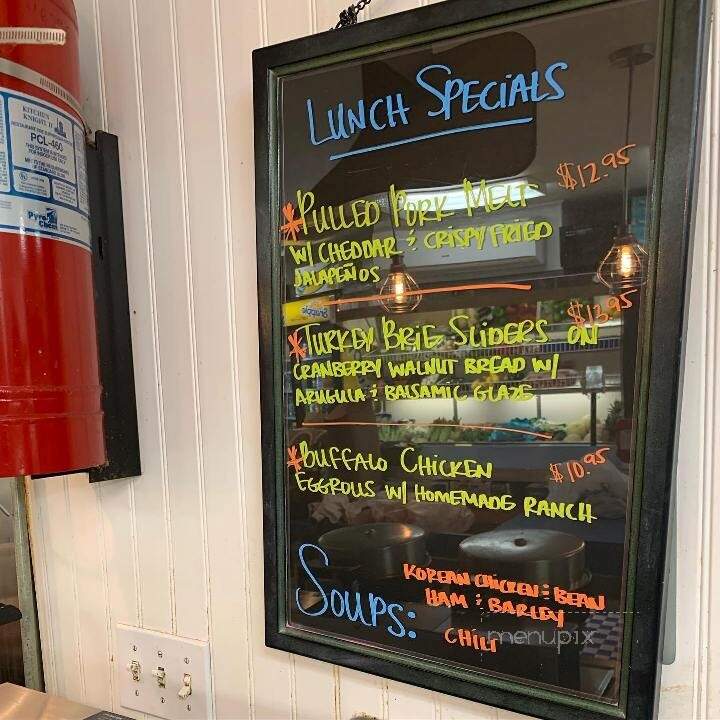 LUNCH SPECIALS
*PULLED PORK MELT $12.95
W/ CHEDDAR & CRISPY FRIED
JALAPEÑOS
*TURKEY BRIE SLIDERS ON $13.95
CRANBERRY WALNUT BREAD W/
ARUGULA & BALSAMIC GLAZE
*BUFFALO CHICKEN $10.95
EGGROLLS W/ HOMEMADE RANCH
SOUPS:
KOREAN CHICKEN & BEAN
HAM & BARLEY
CHILI
menupix
KITCHEN
KNIGHT II
PCL-460
Pyro
Chem
Snapple